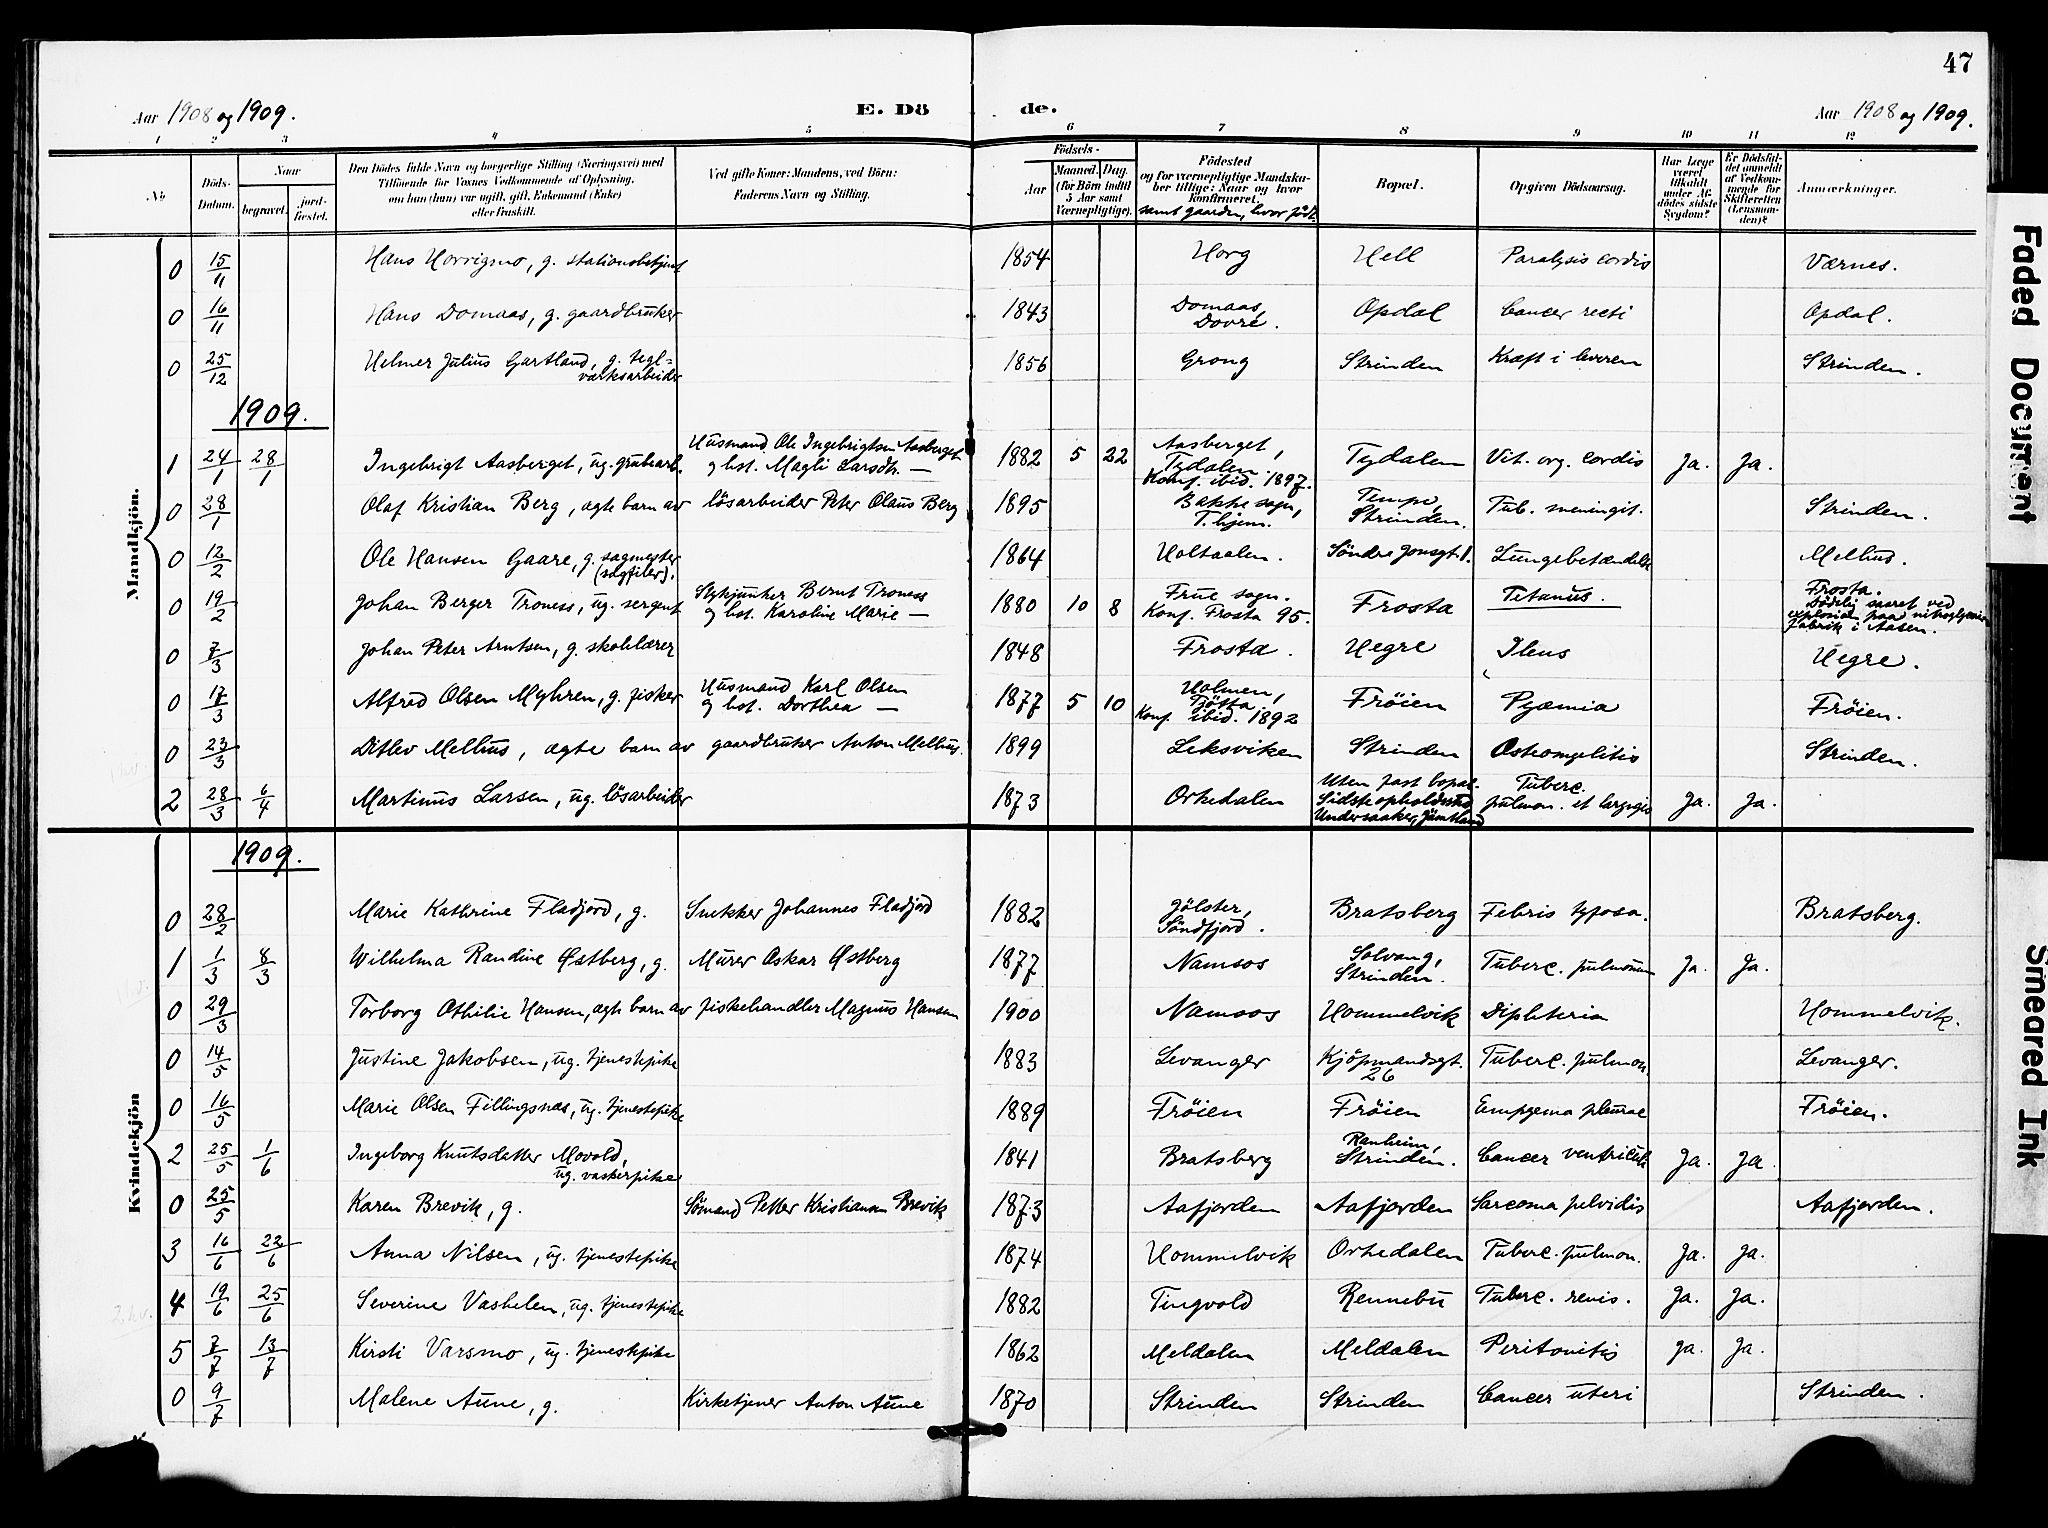 47
Aar 1908 og 1909. E. Dö de. Aar 1908 og 1909.
1 2 3 4 5 6 7 8 9 10 11 12
No. Döds-Datum. Naar begravet. jordfæstet. Den Dödes fulde Navn og borgerlige Stilling (Næringsvei) med Tilföiende for Voxnes Vedkommende af Oplysning, om han (hun) var ugift, gift, Enkemand (Enke) eller fraskilt. Ved gifte Koner: Mandens, ved Börn: Faderens Navn og Stilling. Födsels- Aar Maaned. Dag. (for Börn indtil 5 Aar samt Værnepligtige). Födested og for værnepligtige Mandskaber tillige: Naar og hvor konfirmeret. samt gaarden, hvor født. Bopæl. Opgiven Dödsaarsag. Har Læge været tilkaldt under Afdödes sidste Sygdom? Er Dödsfaldet anmeldt af Vedkommende for Skifteretten (Lensmanden)? Anmærkninger.
Mandkjön.
0 15/11 Hans Horrigmo, g. stationsbetjent 1854 Horg Hell Paralysis cordis Værnes.
0 16/11 Hans Domaas, g. gaardbruker 1843 Domaas, Dovre. Opdal Cancer recti Opdal.
0 25/12 Helmer Julius Gartland, g. tegl=verksarbeider 1856 Grong Strinden Kræft i leveren Strinden.
1909.
1 24/1 28/1 Ingebrigt Aasberget, ug. grubearb. Husmand Ole Ingebrigtsen Aasberget og hst. Magli Larsdtr. — 1882 5 22 Aasberget, Tydalen. Konf. ibid. 1897. Tydalen Vit. org. cordis Ja. Ja.
0 28/1 Olaf Kristian Berg, ægte barn av løsarbeider Peter Olaus Berg 1895 Bakke sogn, T.hjem. Tempe, Strinden. Tub. meningit. Strinden.
0 12/2 Ole Hansen Gaare, g. sagmester (sagfiler). 1864 Holtaalen. Søndre Jonsgt. 1. Lungebetændelse Melhus.
0 19/2 Johan Berger Troness, ug. sergent Stykjunker Bernt Troness og hst. Karoline Marie — 1880 10 8 Frue sogn. Konf. Frosta 95. Frosta Tetanus. Frosta. Dødelig saaret ved explosion paa nitroglycerin fabrik i Aasen.
0 7/3 Johan Peter Arntsen, g. skolelærer 1848 Frosta. Hegre Ileus Hegre.
0 17/3 Alfred Olsen Myhren, g. fisker Husmand Karl Olsen og hst. Dorthea — 1877 5 10 Holmen, Tjøtta. Konf. ibid. 1892 Frøien Pyæmia Frøien.
0 23/3 Ditlev Melhus, ægte barn av gaardbruker Anton Melhus. 1899 Leksviken Strinden Osteomyelitis Strinden.
2 28/3 6/4 Martinus Larsen, ug. løsarbeider 1873 Orkedalen Uten fast bopæl. Sidste opholdssted Undersaaker, Jämtland Tuberc. pulmon. et laryngis Ja. Ja.
Kvindekjön
1909.
0 28/2 Marie Kathrine Fladjord, g. Snekker Johannes Fladjord 1882 Jølster, Søndfjord. Bratsberg Febris tyfosa. Bratsberg.
1 1/3 8/3 Wilhelma Randine Østberg, g. Murer Oskar Østberg 1877 Namsos Solvang, Strinden. Tuberc. pulmonum Ja. Ja.
0 29/3 Torborg Othilie Hansen, ægte barn av fiskehandler Magnus Hansen 1900 Namsos Hommelvik Difteteria Hommelvik.
0 14/5 Justine Jakobsen, ug. tjenestepike 1883 Levanger Kjøpmandsgt. 26 Tuberc. pulmon. Levanger.
0 16/5 Marie Olsen Fillingsnæs, ug. tjenestepike 1889 Frøien Frøien Empyema pleurae Frøien.
2 25/5 1/6 Ingeborg Knutsdatter Movold, ug. vaskerpike 1841 Bratsberg Ranheim, Strinden. Cancer ventriculi Ja. Ja
0 25/5 Karen Brevik, g. Sømand Petter Kristiansen Brevik 1873 Aafjorden Aafjorden Sarcoma pelvidis Aafjorden.
3 16/6 22/6 Anna Nilsen, ug. tjenestepike 1874 Hommelvik Orkedalen Tuberc. pulmon. Ja. Ja.
4 19/6 25/6 Severine Vashelen, ug. tjenestepike 1882 Tingvold Rennebu Tuberc. renis. Ja. Ja.
5 7/7 13/7 Kirsti Varsmo, ug. tjenestepike 1862 Meldalen Meldalen Peritonitis Ja. Ja.
0 9/7 Malene Aune, g. Kirketjener Anton Aune 1870 Strinden Strinden Cancer uteri Strinden.
Faded Document
Smeared Ink